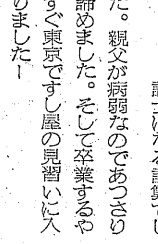 た。親父が病弱なのであつさり
諦めました。そして卒業するや
すぐ東京ですし屋の見習いに入
りましたー